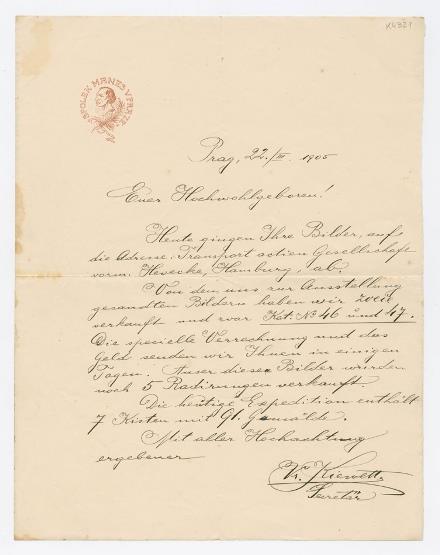 K4321
SPOLEK MANES V PRAZE
Prag, 22./III. 1905
Euer Hochwohlgeboren!
Heute gingen Ihre Bilder, auf
die Adresse: Transport actien Gesellschaft
vorm. Hevecke, Hamburg, ab.
Von dem uns zur Ausstellung
gesandten Bildern haben wir zwei
verkauft und zwar Kat. No 46 und 47.
Die spezielle Verrechnung und das
Geld senden wir Ihnen in einigen
Tagen. Auser diesen Bilder wurden
noch 5 Radirungen verkauft
Die heutige Expedition enthält
7 Kisten mit 91. Gemälde.
Mit aller Hochachtung
ergebener
Secretär